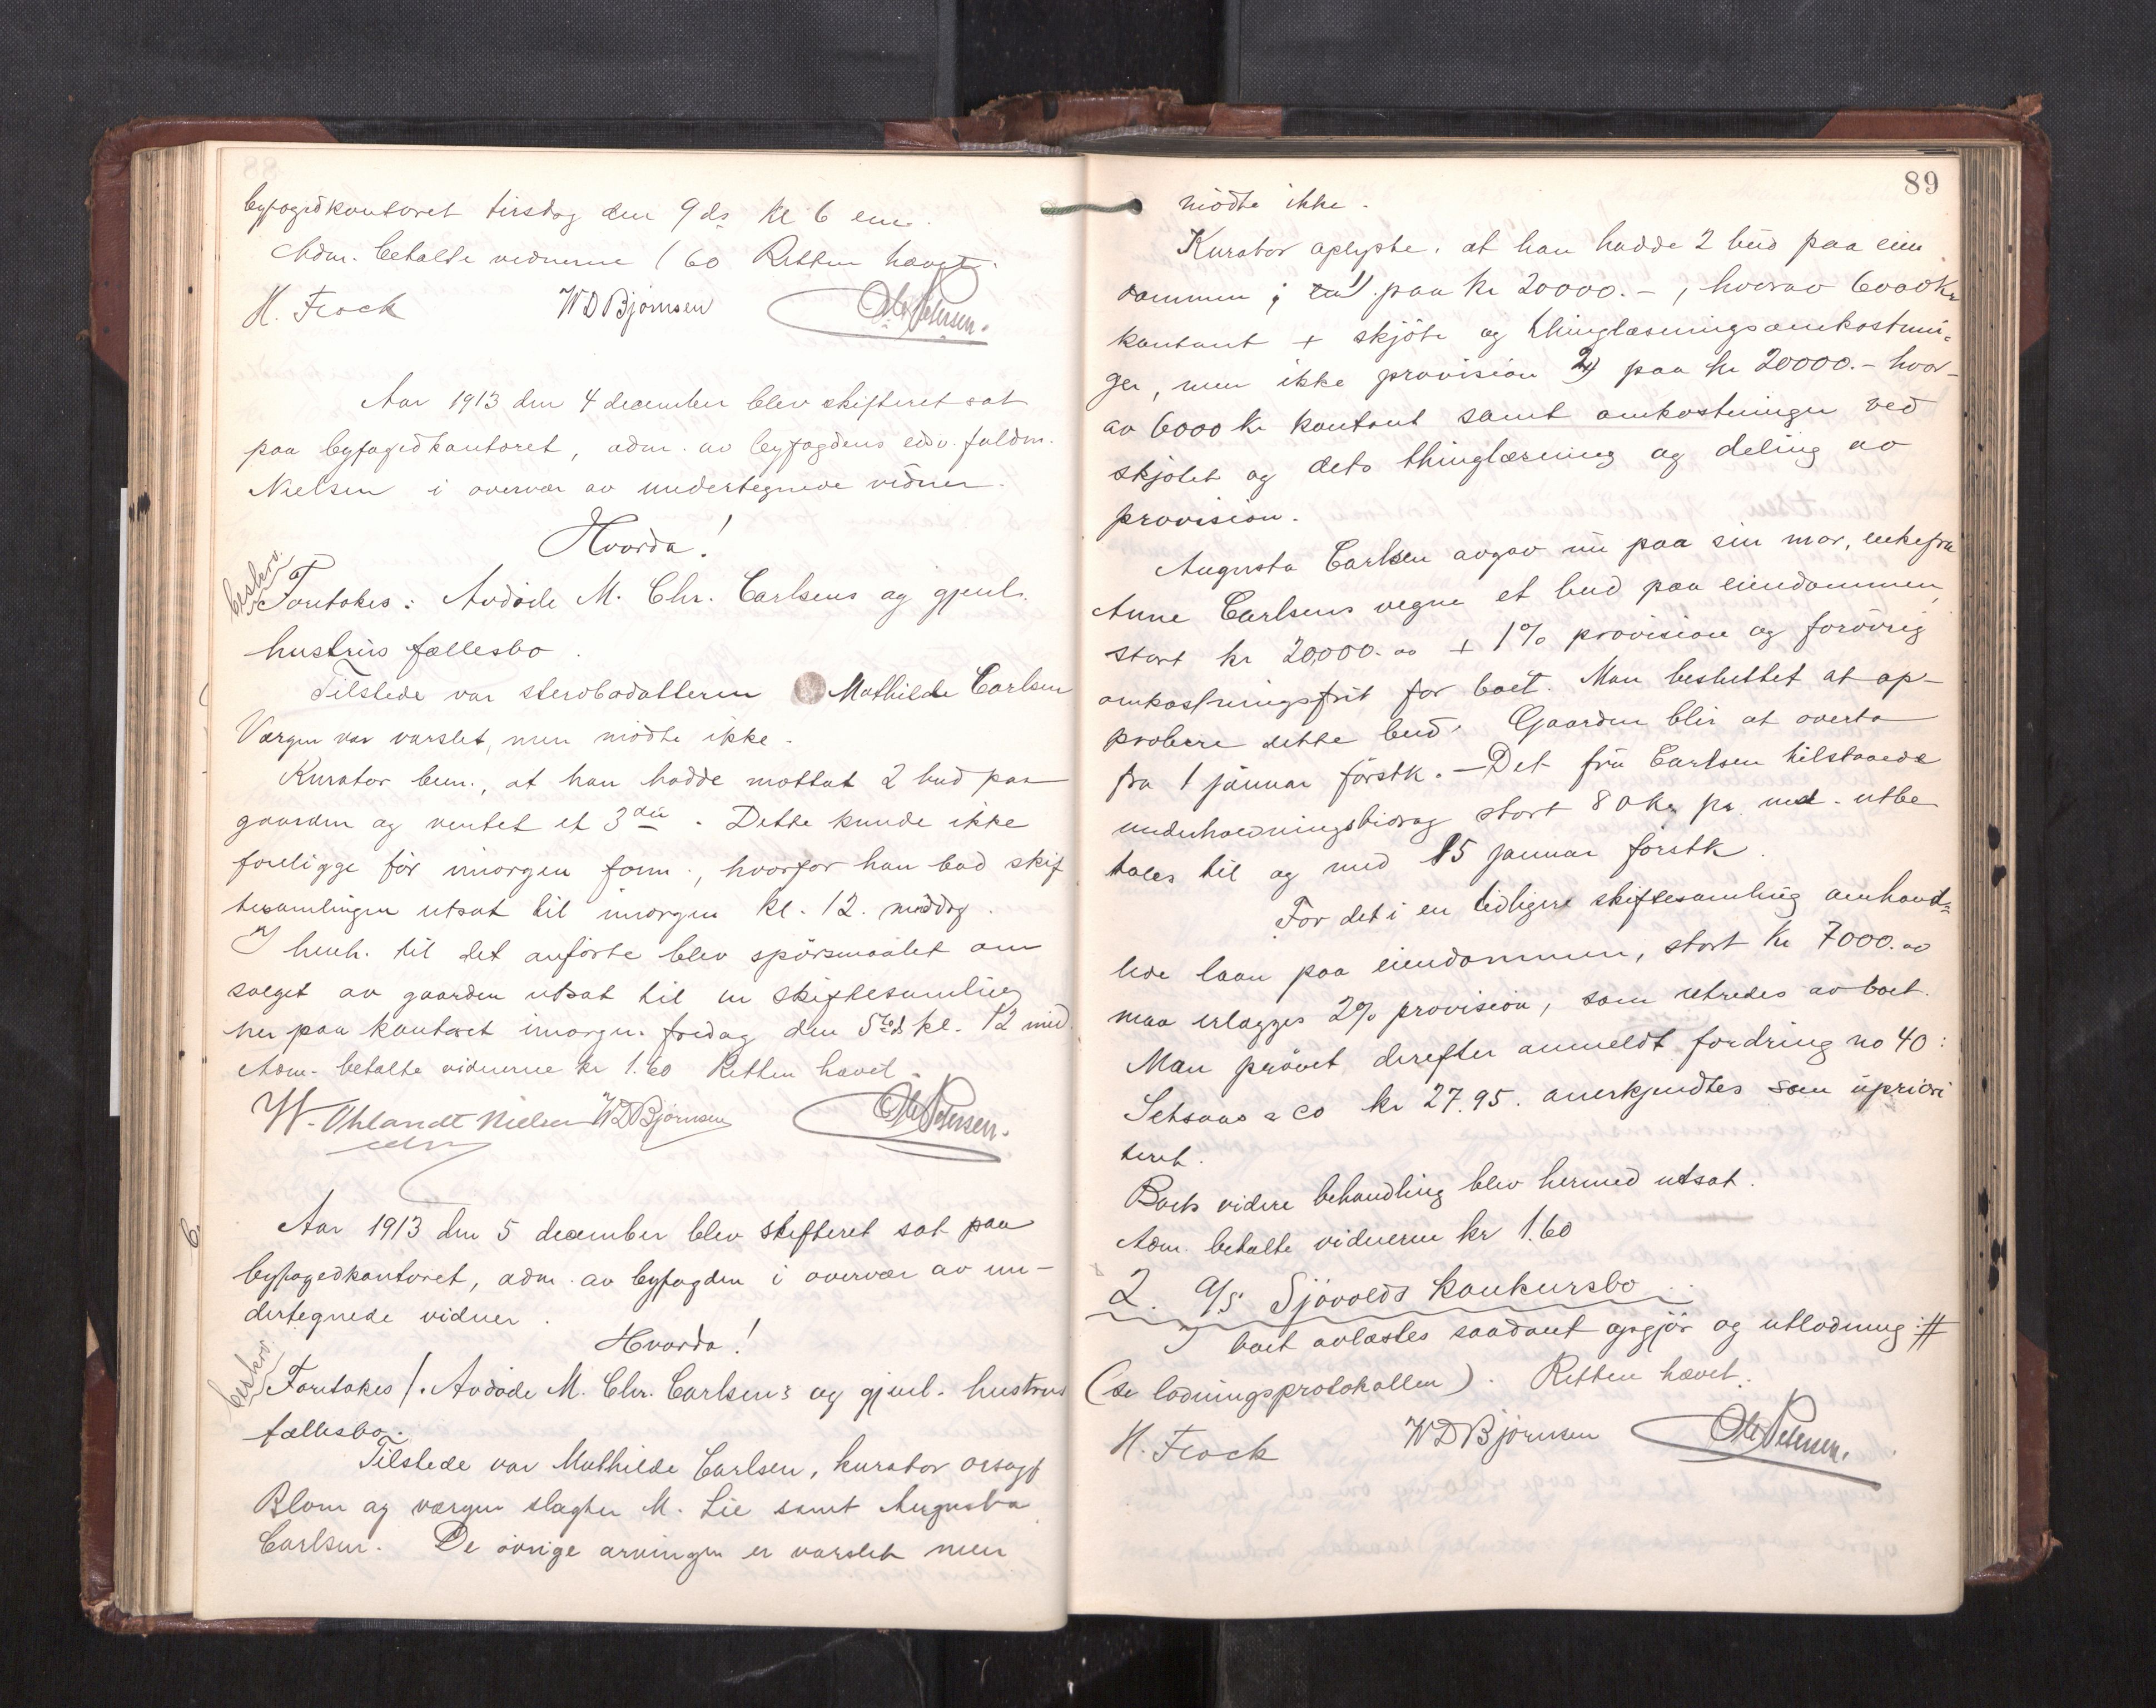 byfogedkontoret tirsdag den 9 ds kl 6 em.
Adm. betalte vidnerne 1 60 Retten hævet.
H. Frock WDBjørnsen Ole Petersen.
Aar 1913 den 4 december blev skifteret sat
paa byfogedkontoret, adm. av byfogdens edsv. fuldm.
Nielsen i overvær av undertegnede vidner.
Hvorda!
beskrv.
Foretokes: Avdøde M. Chr. Carlsens og gjenl.
hustrus fællesbo.
Tilstede var stervbodatteren Mathilde Carlsen
Værgen var varslet, men mødte ikke.
Kurator bem., at han hadde mottat 2 bud paa
gaarden og ventet et 3die. Dette kunde ikke
foreligge før imorgen form., hvorfor han bad skif
tesamlingen utsat til imorgen kl. 12. middag.
I henh. til det anførte blev spørsmaalet om
salget av gaarden utsat til en skiftesamling
her paa kontoret imorgen fredag den 5te ds kl. 12 mid.
Adm. betalte vidnerne kr 1.60 Retten hævet.
W. Uhlandt Nielsen WDBjørnsen Ole Petersen.
edsv
6.
Aar 1913 den 5 december blev skifteret sat paa
byfogedkontoret, adm. av byfogden i overvær av un-
dertegnede vidner.
Hvorda!
beskrv.
Foretokes 1. Avdøde M. Chr. Carlsens og gjenl. hustrus
fællesbo.
Tilstede var Mathilde Carlsen, kurator orsagf
Blom og værgen slagter M. Lie samt Augusta
Carlsen. De øvrige arvinger er varslet men
89
mødte ikke.
Kurator oplyste, at han hadde 2 bud paa eien
dommen; 1) paa kr 20000.-, hvorav 6000 kr
kontant + skjøte og thinglæsningsomkostnin-
ger, men ikke provision 2) paa kr 20000.- hvor-
av 6000 kr kontant samt omkostninger ved
skjøtet og dets thinglæsning og deling av
provision.
Augusta Carlsen avgav nu paa sin mor, enkefru
Anne Carlsens vegne et bud paa eiendommen,
stort kr 20,000.00 + 1% provision og forøvrig
omkostningsfrit for boet. Man besluttet at ap-
probere dette bud. Gaarden blir at overta
fra 1 januar førstk. - Det fru Carlsen tilstaaede
underholdningsbidrag stort 80 kr pr. md. utbe
tales til og med 15 januar førstk.
For det i en tidligere skiftesamling omhand-
lede laan paa eiendommen, stort kr 7000.00
maa erlægges 2% provision, som utredes av boet.
Man prøvet derefter anmeldt fordring no 40:
Setsaas & Co kr 27.95. anerkjendtes som uprior
teret.
Boets videre behandling blev hermed utsat.
Adm. betalte vidnerne kr 1.60
2. A/S Sjøvolds konkursbo.
I boet avlæstes saadant opgjør og utlodning: #
(se lodningsprotokollen). Retten hævet.
H. Frock WDBjørnsen Ole Petersen.